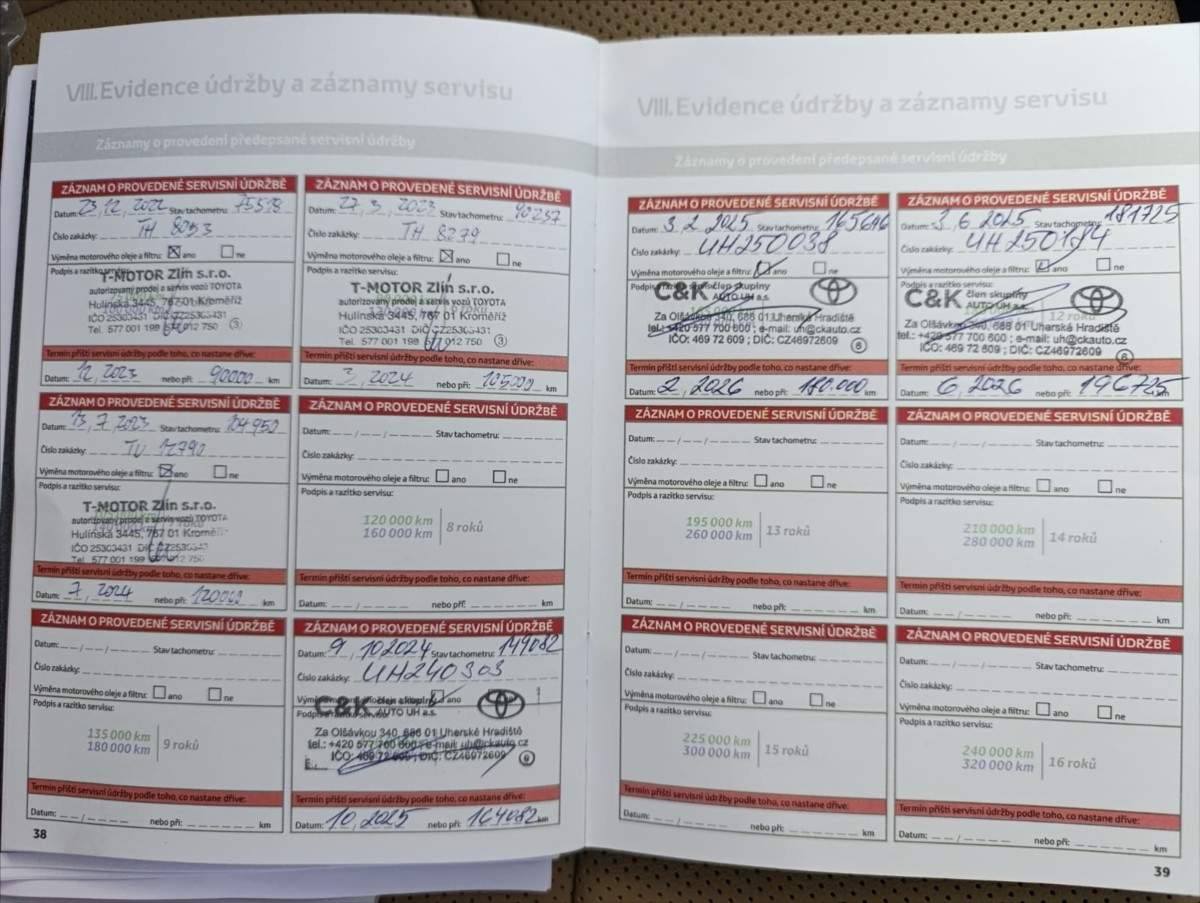 VIII. Evidence údržby a záznamy servisu
Záznamy o provedení předepsané servisní údržby
ZÁZNAM O PROVEDENÉ SERVISNÍ ÚDRŽBĚ
Datum: 23, 12, 2022 Stav tachometru: 75519
Číslo zakázky: TH 8053
Výměna motorového oleje a filtru: ☒ ano ☐ ne
Podpis a razítko servisu:
T-MOTOR Zlín s.r.o.
autorizovaný prodej a servis vozů TOYOTA
Hulínská 3445, 767 01 Kroměříž
IČO 25303431 DIČ CZ25303431
Tel. 577 001 198 012 750 3
Termín příští servisní údržby podle toho, co nastane dříve:
Datum: 12, 2023 nebo při: 90000 km
ZÁZNAM O PROVEDENÉ SERVISNÍ ÚDRŽBĚ
Datum: 27, 3, 2023 Stav tachometru: 90257
Číslo zakázky: TH 8279
Výměna motorového oleje a filtru: ☒ ano ☐ ne
Podpis a razítko servisu:
T-MOTOR Zlín s.r.o.
autorizovaný prodej a servis vozů TOYOTA
Hulínská 3445, 767 01 Kroměříž
IČO 25303431 DIČ CZ25303431
Tel. 577 001 198 012 750 3
Termín příští servisní údržby podle toho, co nastane dříve:
Datum: 3, 2024 nebo při: 105000 km
ZÁZNAM O PROVEDENÉ SERVISNÍ ÚDRŽBĚ
Datum: 13, 7, 2023 Stav tachometru: 104950
Číslo zakázky: TU 12790
Výměna motorového oleje a filtru: ☒ ano ☐ ne
Podpis a razítko servisu:
T-MOTOR Zlín s.r.o.
autorizovaný prodej a servis vozů TOYOTA
Hulínská 3445, 767 01 Kroměříž
IČO 25303431 DIČ
Tel. 577 001 198 012 750
Termín příští servisní údržby podle toho, co nastane dříve:
Datum: 7, 2024 nebo při: km
ZÁZNAM O PROVEDENÉ SERVISNÍ ÚDRŽBĚ
Datum: __ / __ / ____ Stav tachometru:
Číslo zakázky:
Výměna motorového oleje a filtru: ☐ ano ☐ ne
Podpis a razítko servisu:
120 000 km
160 000 km
8 roků
Termín příští servisní údržby podle toho, co nastane dříve:
Datum: __ / ____ nebo při: km
ZÁZNAM O PROVEDENÉ SERVISNÍ ÚDRŽBĚ
Datum: __ / __ / ____ Stav tachometru:
Číslo zakázky:
Výměna motorového oleje a filtru: ☐ ano ☐ ne
Podpis a razítko servisu:
135 000 km
180 000 km
9 roků
Termín příští servisní údržby podle toho, co nastane dříve:
Datum: __ / ____ nebo při: km
ZÁZNAM O PROVEDENÉ SERVISNÍ ÚDRŽBĚ
Datum: 9, 10 2024 Stav tachometru: 149082
Číslo zakázky: UH240303
ano
C&K člen skupiny
AUTO UH a.s.
Za Olšávkou 340, 686 01 Uherské Hradiště
tel.: +420 577 700 600 ; e-mail: uh@ckauto.cz
IČO: 469 72 609 ; DIČ: CZ46972609 6
Termín příští servisní údržby podle toho, co nastane dříve:
Datum: 10, 2025 nebo při: 164082 km
38
VIII. Evidence údržby a záznamy servisu
Záznamy o provedení předepsané servisní údržby
ZÁZNAM O PROVEDENÉ SERVISNÍ ÚDRŽBĚ
Datum: 3, 2 2025 Stav tachometru: 165696
Číslo zakázky: UH250038
Výměna motorového oleje a filtru: ☑ ano ☐ ne
C&K člen skupiny
AUTO UH a.s.
Za Olšávkou 340, 686 01 Uherské Hradiště
tel.: +420 577 700 600 ; e-mail: uh@ckauto.cz
IČO: 469 72 609 ; DIČ: CZ46972609 6
Termín příští servisní údržby podle toho, co nastane dříve:
Datum: 2, 2026 nebo při: 180.000 km
ZÁZNAM O PROVEDENÉ SERVISNÍ ÚDRŽBĚ
Datum: 3, 6 2025 Stav tachometru: 181725
Číslo zakázky: UH250184
Výměna motorového oleje a filtru: ☑ ano ☐ ne
Podpis a razítko servisu:
C&K člen skupiny
AUTO UH a.s.
12 roků
Za Olšávkou 340, 686 01 Uherské Hradiště
tel.: +420 577 700 600 ; e-mail: uh@ckauto.cz
IČO: 469 72 609 ; DIČ: CZ46972609 6
Termín příští servisní údržby podle toho, co nastane dříve:
Datum: 6, 2026 nebo při: 196725 km
ZÁZNAM O PROVEDENÉ SERVISNÍ ÚDRŽBĚ
Datum: __ / __ / ____ Stav tachometru:
Číslo zakázky:
Výměna motorového oleje a filtru: ☐ ano ☐ ne
Podpis a razítko servisu:
195 000 km
260 000 km
13 roků
Termín příští servisní údržby podle toho, co nastane dříve:
Datum: __ / ____ nebo při: km
ZÁZNAM O PROVEDENÉ SERVISNÍ ÚDRŽBĚ
Datum: __ / __ / ____ Stav tachometru:
Číslo zakázky:
Výměna motorového oleje a filtru: ☐ ano ☐ ne
Podpis a razítko servisu:
210 000 km
280 000 km
14 roků
Termín příští servisní údržby podle toho, co nastane dříve:
Datum: __ / ____ nebo při: km
ZÁZNAM O PROVEDENÉ SERVISNÍ ÚDRŽBĚ
Datum: __ / __ / ____ Stav tachometru:
Číslo zakázky:
Výměna motorového oleje a filtru: ☐ ano ☐ ne
Podpis a razítko servisu:
225 000 km
300 000 km
15 roků
Termín příští servisní údržby podle toho, co nastane dříve:
Datum: __ / ____ nebo při: km
ZÁZNAM O PROVEDENÉ SERVISNÍ ÚDRŽBĚ
Datum: __ / __ / ____ Stav tachometru:
Číslo zakázky:
Výměna motorového oleje a filtru: ☐ ano ☐ ne
Podpis a razítko servisu:
240 000 km
320 000 km
16 roků
Termín příští servisní údržby podle toho, co nastane dříve:
Datum: __ / ____ nebo při: km
39